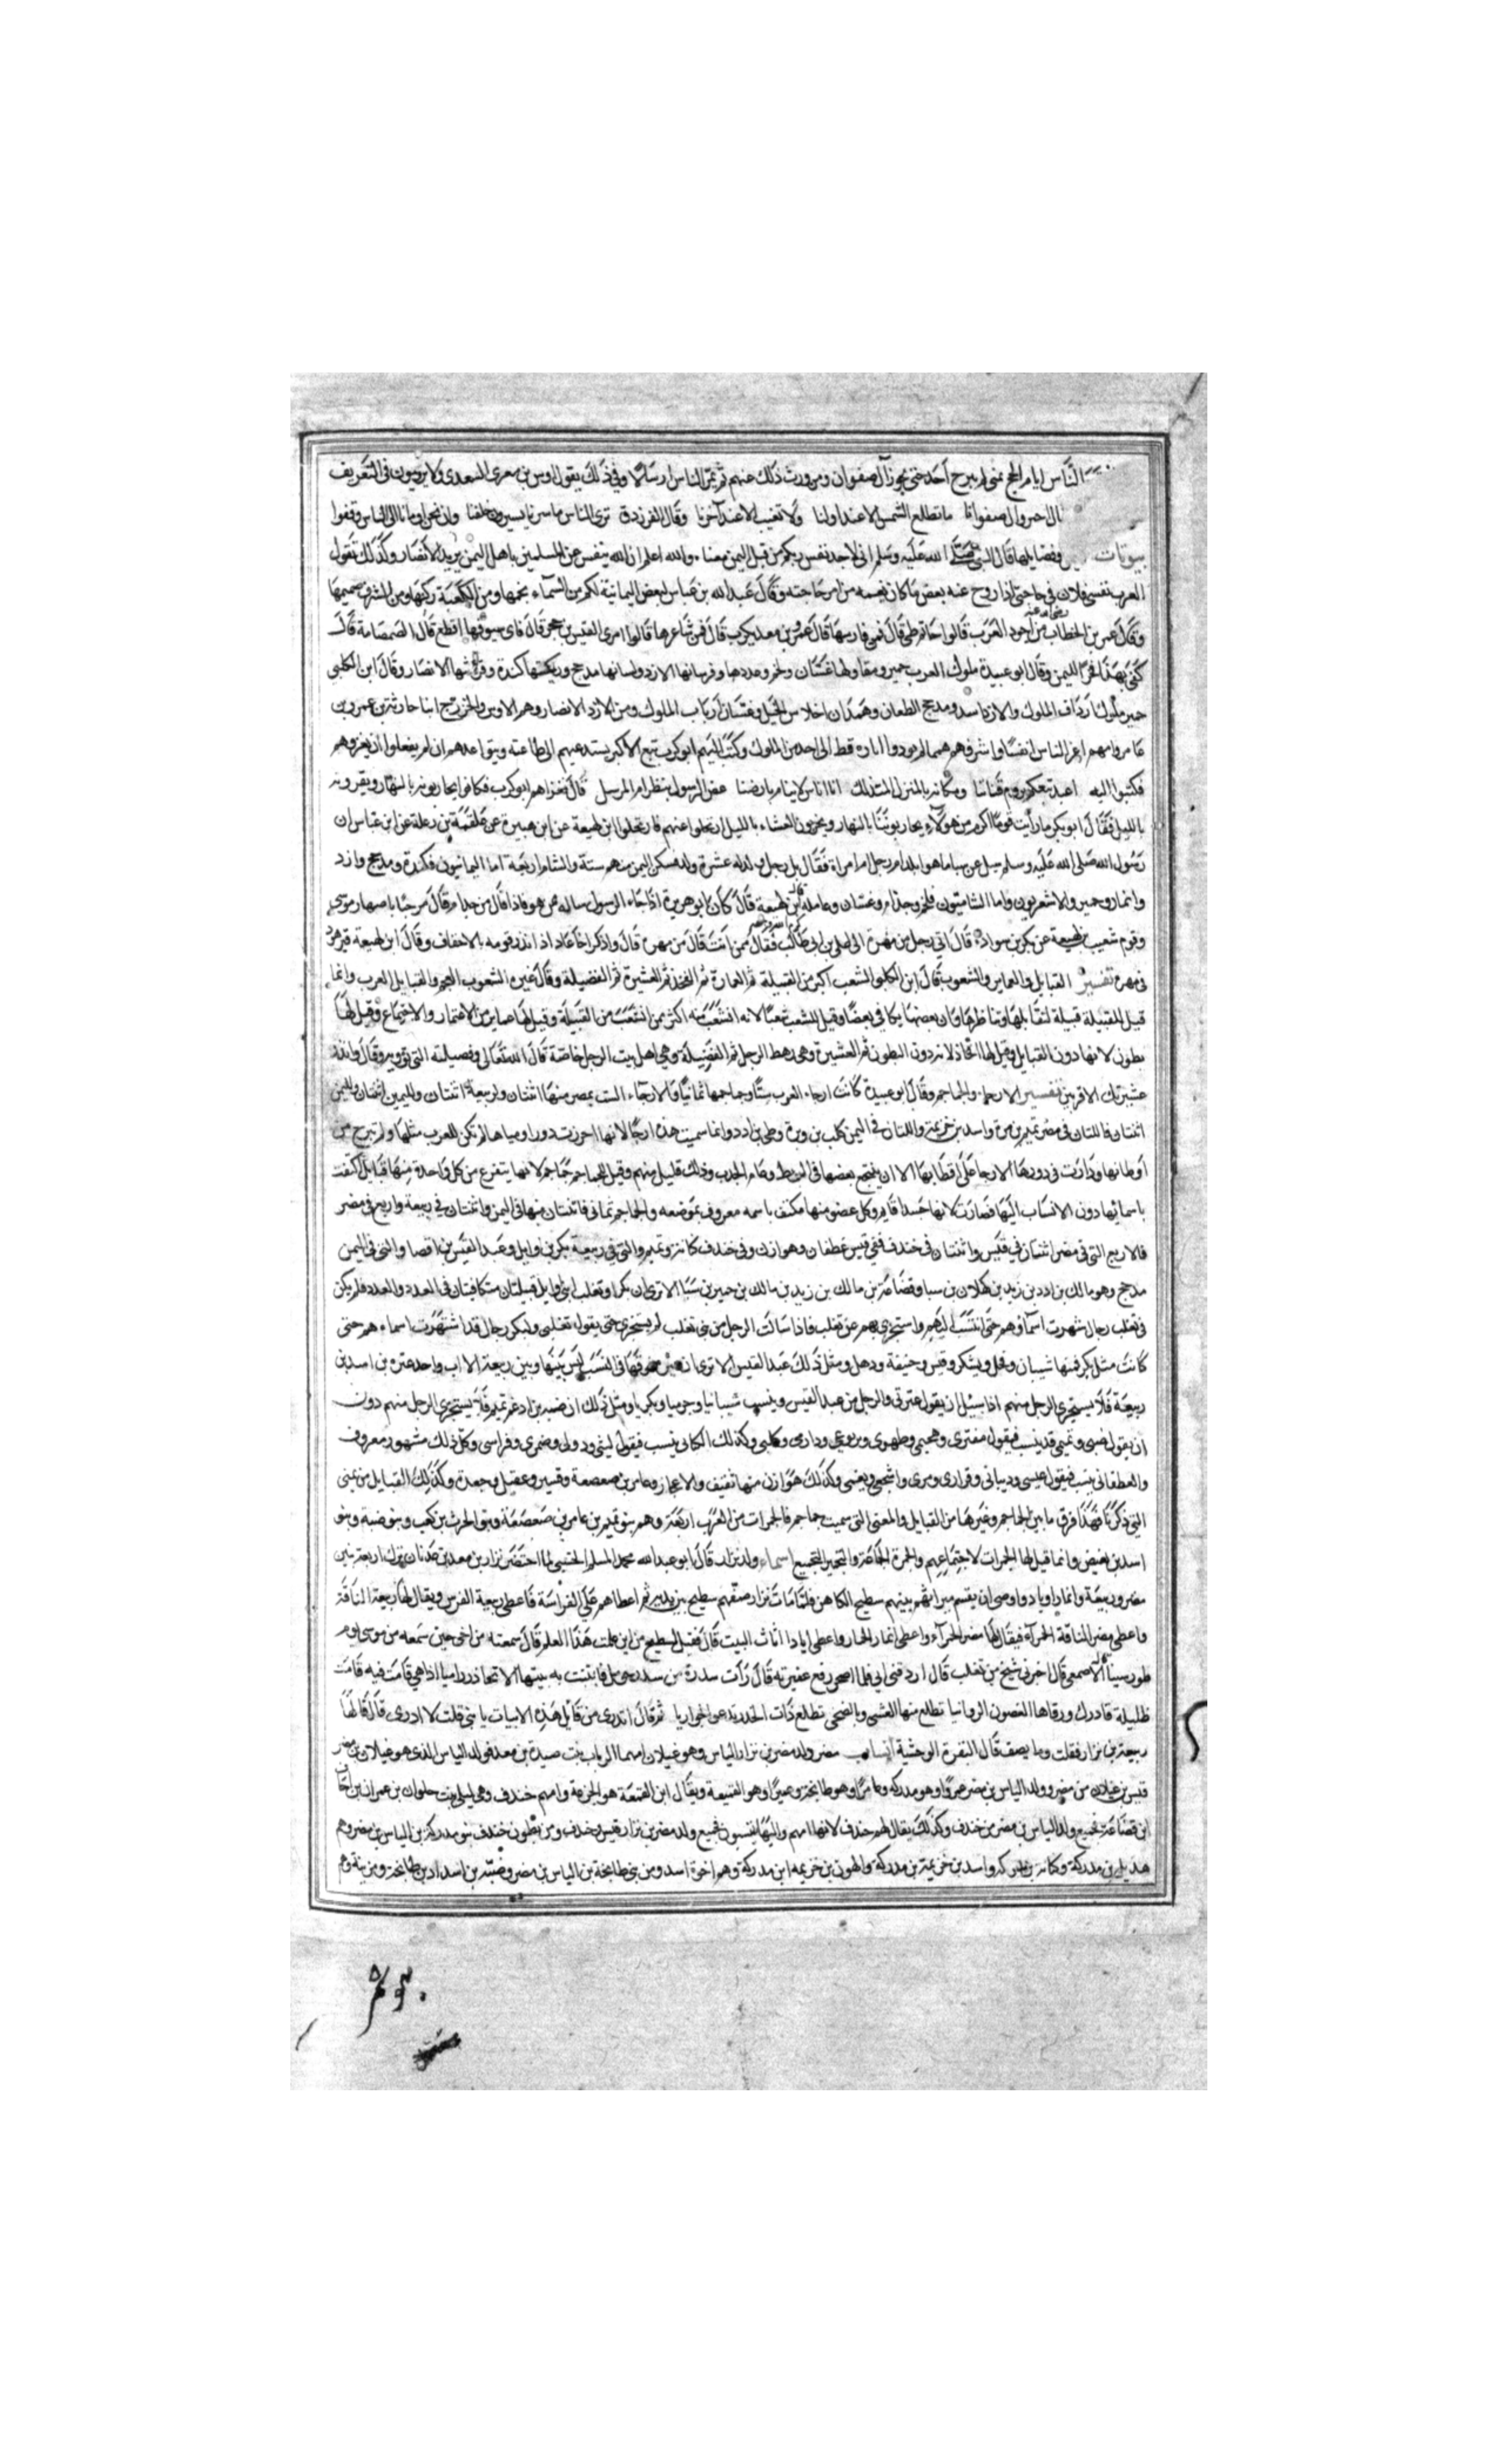 الناس ايام الحج بمنى لم يبرح احد حتى يجوز آل صفوان ومن ورث ذلك عنهم ثم تمر الناس ارسالا وفي ذلك يقول اوس بن مغرى السعدي ولا يريمون في التعريف
ال صفوانا ما تطلع الشمس الا عند اولنا ولا تغيب الا عند آخرنا وقال الفرزدق ترى الناس ما سرنا يسيرون خلفنا وان نحن اومانا الى الناس وقفوا
بيوتات وفضايلها قال النبي صلى الله عليه وسلم اني لاجد نفس ربكم من قبل اليمن معناه والله اعلم ان الله ينفس عن المسلمين باهل اليمن يريد الانصار وكذلك تقول
العرب نفسي فلان في حاجتي اذا روح عنه بعض ما كان يغمه من امر حاجته وقال عبد الله بن عباس لبعض اليمانية لكم من السماء نجمها ومن الكعبة ركنها ومن الشرف صميمها
وقال عمر بن الخطاب رضي الله عنه من اجود العرب قالوا حاتم طي قال فمن فارسها قال عمرو بن معد يكرب قال فمن شاعرها قالوا امرئ القيس بن حجر قال فاي سيوفها اقطع قال الصمصامة قال
كفى بهذا فخرا لليمن وقال ابو عبيدة ملوك العرب حمير ومقاولها غسان ولخم وعددها وفرسانها الازد ولسانها مدحج وريحانتها كندة وقريشها الانصار وقال ابن الكلبي
حمير ملوك ارداف الملوك والازد اسد ومدحج الطعان وهمدان احلاس الخيل وغسان ارباب الملوك ومن الازد الانصار وهم الاوس والخزرج ابنا حارثة بن عمرو بن
عامر وامهم اعز الناس انفسا واشرفهم همما لم يودوا اتاوة قط الى احد من الملوك وكتب اليهم ابو كرب تبع الاكبر يستدعيهم الى طاعته ويتواعدهم ان لم يفعلوا ان يغزوهم
فكتبوا اليه العبد تبعكم يروم قتالنا ومكانه بالمنزل المتذلل انا اناس لا ينام بارضنا عض الرسول ببظر ام المرسل قال فغزاهم ابو كرب فكانوا يحاربونه بالنهار ويقرونه
بالليل فقال ابو كرب ما رأيت قوما اكرم من هولاء يحاربوننا بالنهار ويخرجون العشاء بالليل ارتحلوا عنهم فارتحلوا ابن لهيعة عن ابن هبيرة عن علقمة بن وعلة عن ابن عباس ان
رسول الله صلى الله عليه وسلم سيل عن سبا ما هو ابلد ام رجل ام امراة فقال بل رجل ولد له عشرة ولد فسكن اليمن منهم ستة والشام اربعة اما اليمانيون فكندة ومدحج وازد
وانمار وحمير والاشعريون واما الشاميون فلخم وجذام وغسان وعاملة ابن لهيعة قال كان ابو هريرة اذا جاء الرسول ساله ممن هو فاذا قال من جذام قال مرحبا باصهار موسى
وقوم شعيب ابن لهيعة عن بكر بن سوادة قال اتى رجل من مهرة الى علي بن ابي طالب فقال ممن انت قال من مهرة قال واذكر اخا عاد اذ انذر قومه بالاحقاف وقال ابن لهيعة قبر هود
في مهرة تفسير القبايل والعماير والشعوب قال ابن الكلبي الشعب اكبر من القبيلة ثم العمارة ثم الفخذ ثم العشيرة ثم الفصيلة وقال غيره الشعوب العجم والقبايل العرب وانما
قيل للقبيلة قبيلة لتقابلها وتناظرها وان بعضها يكافي بعضا وقيل للشعب شعبا لانه انشعب منه اكثر ممن انشعب من القبيلة وقيل لها عماير من الاعتمار والاجتماع وقيل لها
بطون لانها دون القبايل وقيل لها افخاذ لانها دون البطون ثم العشيرة وهي رهط الرجل ثم الفصيلة وهي اهل بيت الرجل خاصة قال الله تعالى وفصيلته التي تؤويه وقال وانذر
عشيرتك الاقربين تفسير الارحاء والجماجم وقال ابو عبيدة كانت ارحاء العرب ستا وجماجمها ثمانيا فالارحاء الست بمضر منها اثنتان ولربيعة اثنتان ولليمن اثنتان
اثنتان فاللتان في مضر تميم بن مرة واسد بن خزيمة واللتان في اليمن كلب بن وبرة وطي بن ادد وانما سميت هذه ارحا لانها احرزت دورا ومياها لم تكن للعرب مثلها ولم تبرح من
اوطانها ودارت في دورها كالارحا على اقطابها الا ان ينتجع بعضها في البرحا وعام الجدب وذلك قليل منهم وقيل للجماجم جماجم لانها يتفرع من كل واحدة منها قبايل اكتفت
باسمائها دون الانتساب اليها فصارت كانها جسد قايم وكل عضو منها مكتف باسمه معروف بموضعه والجماجم ثمان فاثنتان منها في اليمن واثنتان في ربيعة واربع في مضر
فالاربع التي في مضر اثنتان في قيس واثنتان في خندف ففي قيس غطفان وهوازن وفي خندف كنانة وتميم والتي في ربيعة بكر بن وايل وعبد القيس بن افصا والتي في اليمن
مدحج وهو مالك بن ادد بن زيد بن كهلان بن سبا وقضاعة بن مالك بن زيد بن مالك بن حمير بن سبا الا ترى ان بكرا وتغلب ابني وايل قبيلتان متكافيتان في العدد والعدد فلم يكن
في تغلب رجال شهرت اسماؤهم حتى انتسب اليهم واستجزى بهم عن تغلب فاذا سالت الرجل من بني تغلب لم يستجزئ حتى يقول تغلبي ولبكر رجال قد اشتهرت اسماءهم حتى
كانت مثل بكر فمنها شيبان وعجل ويشكر وقيس وحنيفة وذهل ومثل ذلك عبد القيس الا ترى ان فوقها في النسب ليس بينها وبين ربيعة الا اب واحد عنزة بن اسد بن
ربيعة فلا يستجزي الرجل منهم اذا سيل ان يقول عنزي والرجل من عبد القيس وينسب شيبانيا وجرميا وبكريا ومثل ذلك ان ضبة بن اد عم تميم فلا يستجزي الرجل منهم دون
ان يقول ضبي وتميمي قد ينسب فيقول منقري وهجيمي وطهوي ويربوعي ودارمي وكلبي وكذلك الكناني ينسب فيقول ليثي ودولي وضمري وفراسي وكل ذلك مشهور معروف
والغطفاني ينسب فيقول عبسي وذبياني وفزاري ومري واشجعي وبغيضي وكذلك هوازن منها ثقيف والاعجاز وعامر بن صعصعة وقشير وعقيل وجعدة وكذلك القبايل من يمن
التي ذكرنا فهذا فرق ما بين الجماجم وغيرها من القبايل والمعنى التي سميت جماجم فالجمرات من العرب اربعة وهم بنو نمير بن عامر بن صعصعة وبنو الحرث بن كعب وبنو ضبة وبنو
اسد بن بغيض وانما قيل لها الجمرات لاجتماعهم والجمرة الجماعة والتجمير التجميع اسماء ولد نزار قال ابو عبد الله محمد المسلم الخشني لما احتضر نزار بن معد بن عدنان ترك اربعة بنين
مضر وربيعة وانمارا وايادا واوصى ان يقسم ميراثهم بينهم سطيح الكاهن فلما مات نزار صفهم سطيح بين يديه ثم اعطاهم على الفراسة فاعطى ربيعة الفرس ويقال لها ربيعة
واعطى مضر الناقة الحمراء فيقال لها مضر الحمراء واعطى انمار الحمار واعطى ايادا اثاث البيت قال فقيل لسطيح من اين علمت هذا العلم قال سمعته من اخي حين سمعه من موسى يوم
طور سينا الاصمعي قال اخبرني شيخ من تغلب قال اردفني ابي فلما اصحر رفع عقيرته قال رأت سدرة من سدر حومل فابتنت به بيتها الا تحاذر راميا اذا هي قامت فيه قامت
ظليلة فادرك ورقاها الغصون الروانيا تطلع منها بالعشي وبالضحى تطلع ذات الخدر تدعو الجواريا ثم قال اتدري من قايل هذه الابيات يا بني قلت لا ادري قال قالها
ربيعة بن نزار فقلت وما يصف قال البقرة الوحشية انساب مضر ولد مضر بن نزار الياس وهو غيلان امهما الرباب بنت حيدة بن معد فولد الياس الذي هو غيلان بن مضر
قيس بن غيلان من مضر وولد الياس بن مضر عمرا وهو مدركة وعامرا وهو طابخة وعميرا وهو القميعة ويقال ابن القمعة هو الخزعة وامهم خندف وهي ليلى بنت حلوان بن عمران بن الحاف
ابن قضاعة فجميع ولد الياس بن مضر من خندف وكذلك يقال لهم خندف لانها امهم واليها ينتسبون فجميع ولد مضر بن نزار قيس وخندف ومن بطون خندف بنو مدركة بن الياس بن مضر وهم
هذيل بن مدركة وكنانة بن مدركة واسد بن خزيمة بن مدركة والهون بن خزيمة ابن مدركة وهم اخوة اسد ومن بني طابخة بن الياس بن مضر وضبة بن اد بن طابخة ومزينة وهم